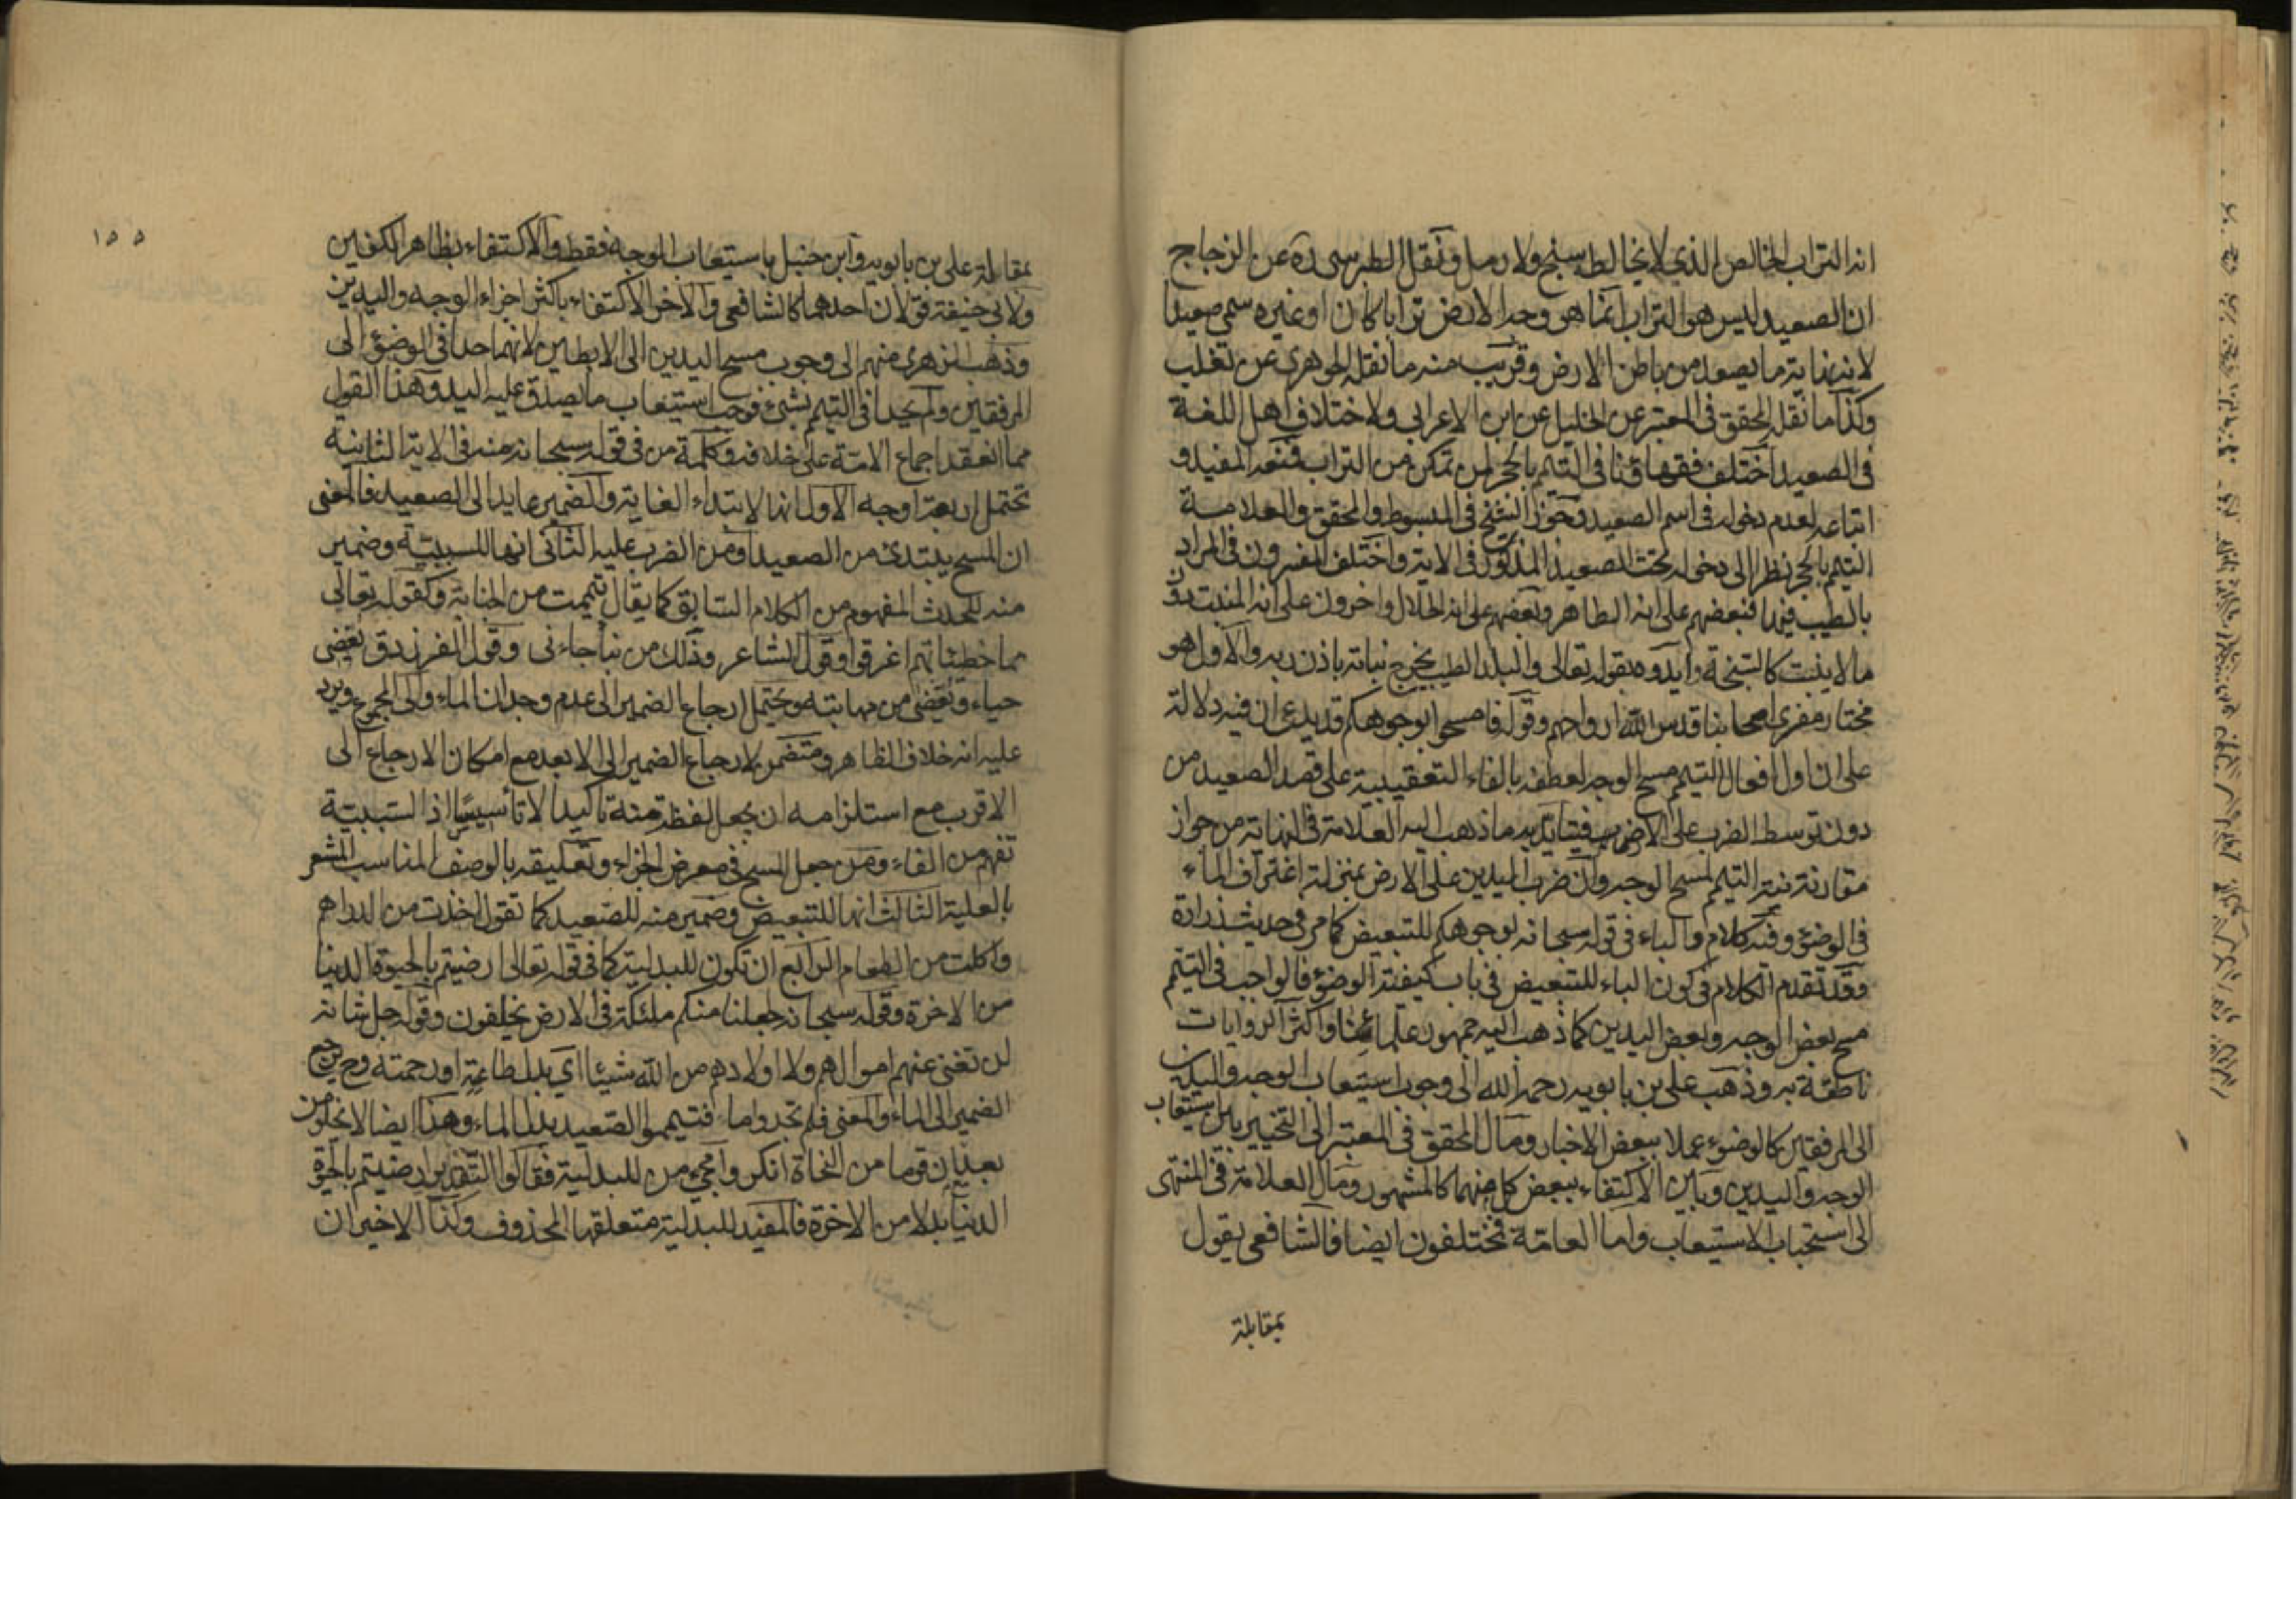 انه التراب الخالص الذي لا يخالطه سبخ ولا رمل ونقل الطبرسى ره عن الزجاج
ان الصعيد ليس هو التراب انما هو وجه الارض ترابا كان او غيره سمى صعيدا
لانه نهاية ما يصعد من باطن الارض وقريب منه ما نقله الجوهرى عن تغلب
وكذا ما نقله المحقق فى المعتبر عن الخليل عن ابن الاعرابى ولاختلاف اهل اللغة
فى الصعيد اختلف فقهاؤنا فى التيمم بالحجر لمن تمكن من التراب فمنعه المفيد و
اتباعه لعدم دخوله فى اسم الصعيد وجوزه الشيخ فى المبسوط والمحقق والعلامة
التيمم بالحجر نظرا الى دخوله تحت الصعيد المذكور فى الاية واختلف المفسرون فى المراد
بالطيب فيها فبعضهم على انه الطاهر وبعضهم على انه الحلال واخرون على انه المنبت دون
ما لا ينبت كالسبخة وايدوه بقوله تعالى والبلد الطيب يخرج نباته باذن ربه والاول هو
مختار مفسرى اصحابنا قدس الله ارواحهم وقوله فامسحوا بوجوهكم قد يدعى ان فيه دلالة
على ان اول افعال التيمم مسح الوجه لعطفه بالفاء التعقيبية على قصد الصعيد من
دون توسط الضرب على الارض فيتايد به ما ذهب اليه العلامة فى النهاية من جواز
مقارنة نية التيمم لمسح الوجه وان ضرب اليدين على الارض بمنزلة اغتراف الماء
فى الوضوء وفيه كلام والباء فى قوله سبحانه بوجوهكم للتبعيض كما مر فى حديث زرارة
وقد تقدم الكلام فى كون الباء للتبعيض فى باب كيفية الوضوء فالواجب فى التيمم
مسح بعض الوجه وبعض اليدين كما ذهب اليه جمهور علمائنا واكثر الروايات
ناطقة به وذهب على بن بابويه رحمه الله الى وجوب استيعاب الوجه واليدين
الى المرفقين كالوضوء عملا ببعض الاخبار ومال المحقق فى المعتبر الى التخيير بين استيعاب
الوجه واليدين وبين الاكتفاء ببعض كل منهما كالمشهور ومال العلامة فى المنتهى
الى استحباب الاستيعاب واما العامة فمختلفون ايضا فالشافعى يقول
بمقابلة
١٥٥
بمقابلة على بن بابويه وابن حنبل باستيعاب الوجه فقط والاكتفاء بظاهر الكفين
ولابى حنيفة قولان احدهما كالشافعى والاخر الاكتفاء باكثر اجزاء الوجه واليدين
وذهب الزهرى منهم الى وجوب مسح اليدين الى الابطين لانهما حدا فى الوضوء الى
المرفقين ولم يحدا فى التيمم بشئ فوجب استيعاب ما يصدق عليه اليد وهذا القول
مما انعقد اجماع الامة على خلافه وكلمة من فى قوله سبحانه منه فى الاية الثانية
تحتمل اربعة اوجه الاول انها لابتداء الغاية والضمير عايد الى الصعيد فالمعنى
ان المسح يبتدئ من الصعيد او من الضرب عليه الثانى انها للسببية وضمير
منه للحدث المفهوم من الكلام السابق كما يقال تيممت من الجنابة وكقوله تعالى
مما خطيئاتهم اغرقوا وقول الشاعر وذلك من نبأ جاءنى وقول الفرزدق يغضى
حياء ويغضى من مهابته ويحتمل ارجاع الضمير الى عدم وجدان الماء والى المجموع ويرد
عليه انه خلاف الظاهر ومتضمن لارجاع الضمير الى الابعد مع امكان الارجاع الى
الاقرب مع استلزامه ان يجعل لفظة منه تاكيدا لا تاسيسا اذ السببية
تفهم من الفاء ومن جعل المسح فى معرض الجزاء وتعليقه بالوصف المناسب المشعر
بالعلية الثالث انها للتبعيض وضمير منه للصعيد كما تقول اخذت من الدراهم
واكلت من الطعام الرابع ان تكون للبدلية كما فى قوله تعالى ارضيتم بالحيوة الدنيا
من الاخرة وقوله سبحانه لجعلنا منكم ملئكة فى الارض يخلفون وقوله جل شانه
لن تغنى عنهم اموالهم ولا اولادهم من الله شيئا اى بدل طاعته او رحمته وح يرجع
الضمير الى الماء والمعنى فلم تجدوا ماء فتيمموا الصعيد بدل الماء وهذا ايضا لا يخلو من
بعد فان قوما من النحاة انكروا مجئ من للبدلية فقالوا التقدير ارضيتم بالحيوة
الدنيا بدلا من الاخرة فالمفيد للبدلية متعلقها المحذوف وكذا الاخيران